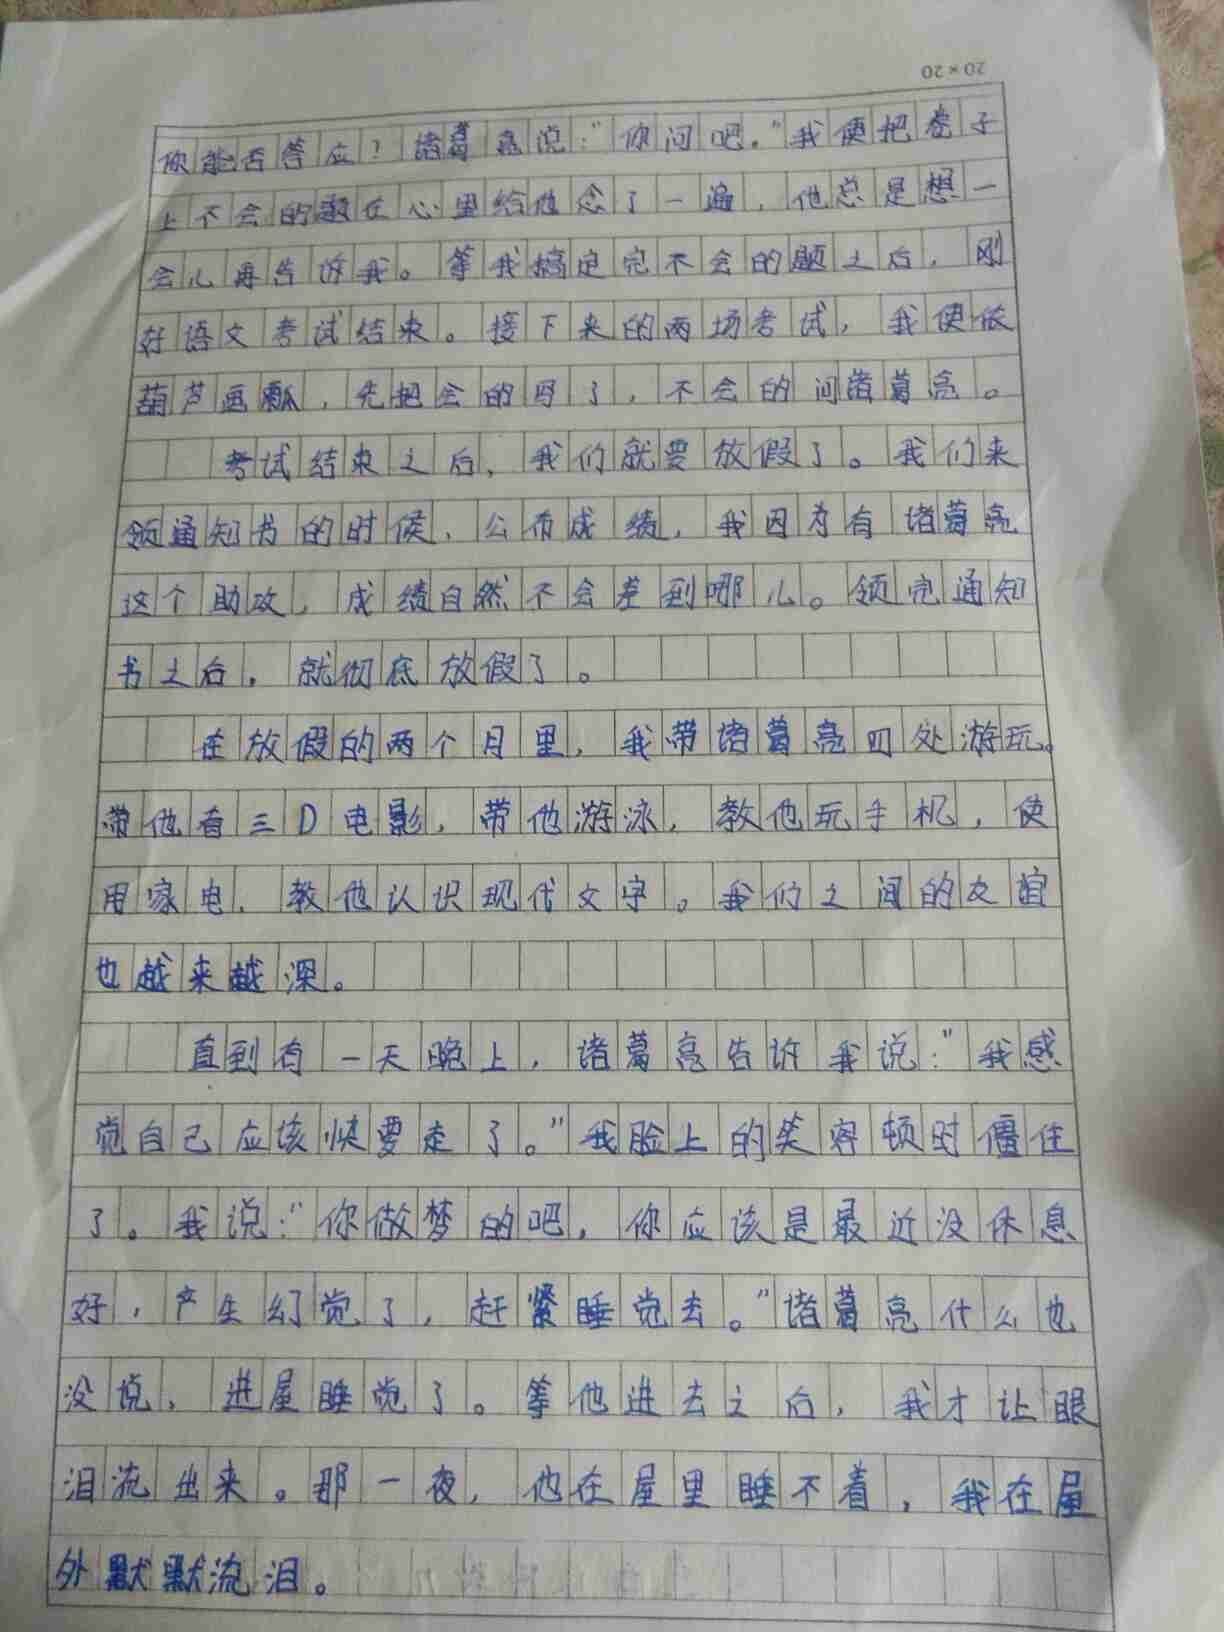 20×20
你能否答应？诸葛亮说：“你问吧。”我便把卷子
上不会的题在心里给他念了一遍，他总是想一
会儿再告诉我。等我搞定完不会的题之后，刚
好语文考试结束。接下来的两场考试，我便依
葫芦画瓢，先把会的写了，不会的问诸葛亮。
考试结束之后，我们就要放假了。我们来
领通知书的时候，公布成绩，我因为有诸葛亮
这个助攻，成绩自然不会差到哪儿。领完通知
书之后，就彻底放假了。
在放假的两个月里，我带诸葛亮四处游玩。
带他看三D电影，带他游泳，教他玩手机，使
用家电，教他认识现代文字。我们之间的友谊
也越来越深。
直到有一天晚上，诸葛亮告诉我说：“我感
觉自己应该快要走了。”我脸上的笑容顿时僵住
了。我说：“你做梦的吧，你应该是最近没休息
好，产生幻觉了，赶紧睡觉去。”诸葛亮什么也
没说，进屋睡觉了。等他进去之后，我才让眼
泪流出来。那一夜，他在屋里睡不着，我在屋
外默默流泪。